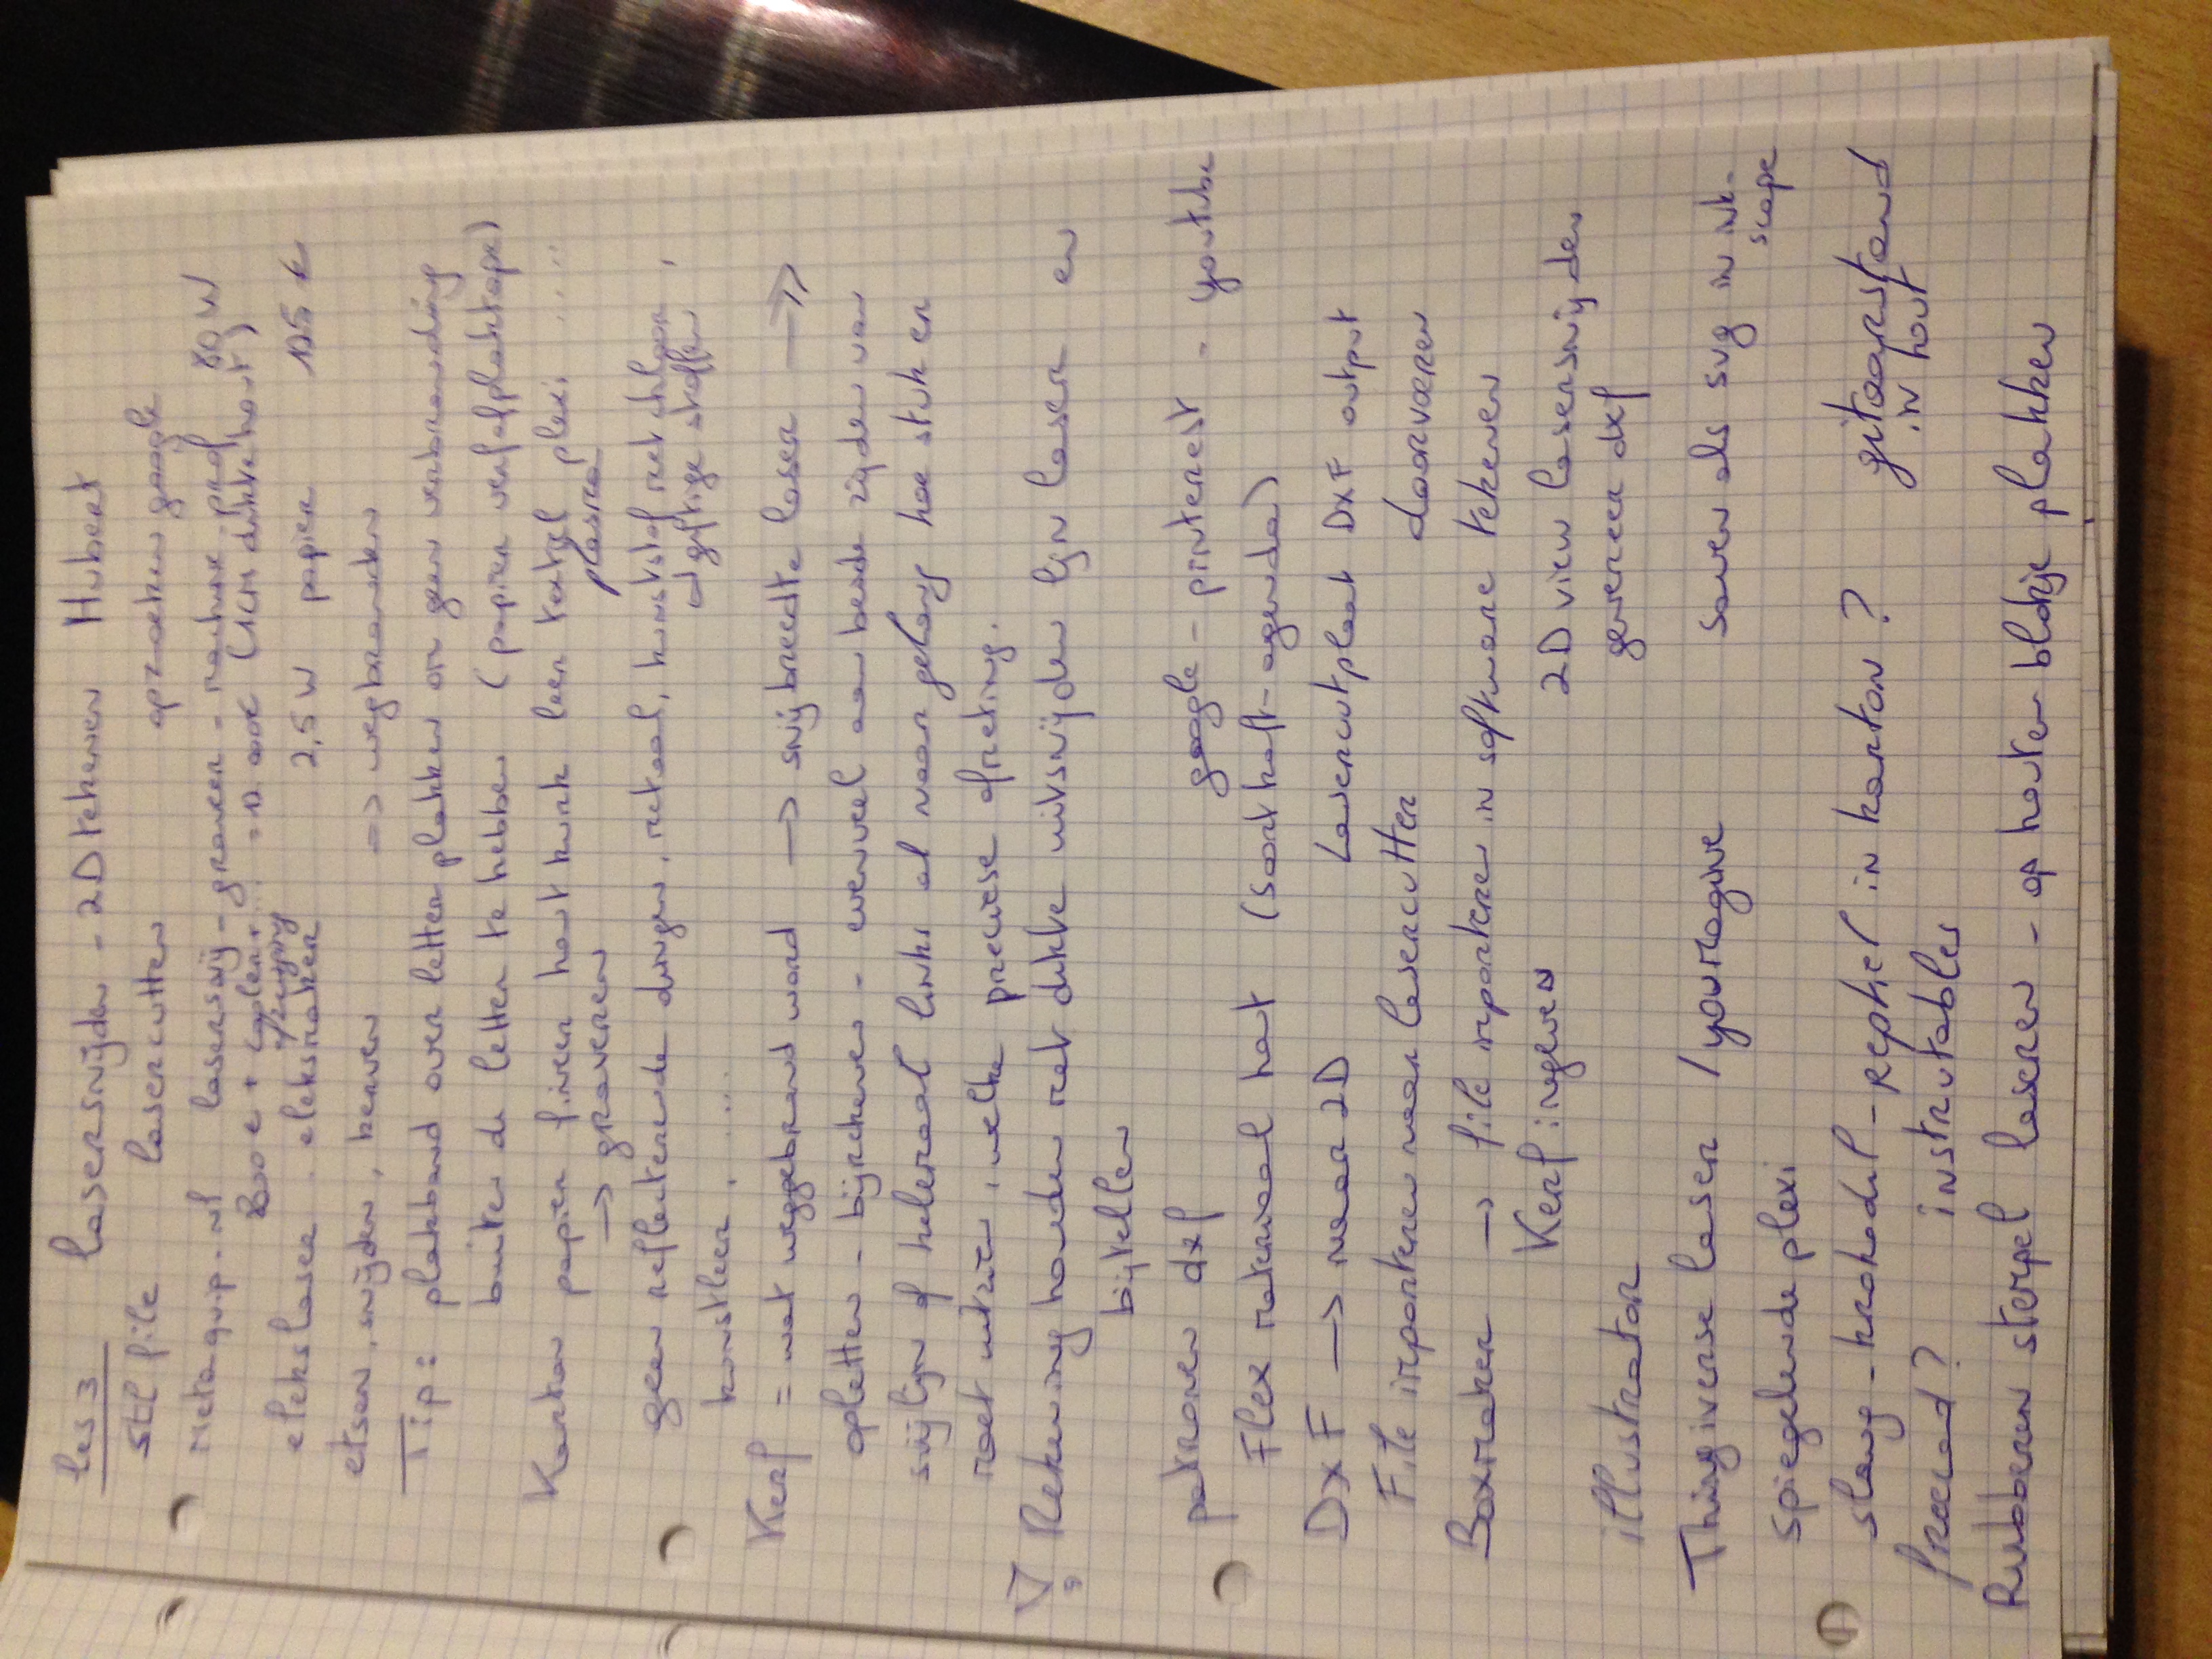 les 3 lasersnijden - 2D tekenen Hubert
stl file lasercutten opzoeken google
metaquip.nl lasersnij - graveer - machine - prof 80 W
800 € + cooler + ... = (1CM dikte hout)
afzuiging
elekslaser - eleksmaker 2,5 W papier 125 €
etsen, snijden, kerven => wegbranden
Tip: plakband over letter plakken om geen verbranding
buiten de letter te hebben (papier verfafplaktape)
Karton papier fineer hout kurk leer textiel plexi .....
-> graveren plasma
geen reflecterende dingen, metaal, kunststof met chloor,
giftige stoffen
kunstleer, .....
Kerf = wat weggebrand word -> snijbreedte laser ->>
opletten - bijrekenen - evenveel aan beide zijden van
snijlijn of helemaal links al naar gelang hoe stuk er
moet uitzien, welke preciese afmeting.
! Rekening houden met dikte uitsnijden lijn laser en
bijtellen
patronen dxf google - pinterest - youtube
Flex materiaal hout (soort kaft-agenda)
DXF -> naar 2D Lasercutplaat DXF output
File importeren naar lasercutter doorvoeren
Boxmaker -> file importeren in software tekenen
Kerf ingeven 2D view lasersnijden
illustrator genereer dxf
Thingiverse laser /youmagine saven als svg in ink-
scape
spiegelende plexi
slang - krokodil - reptiel in karton? gitaarstand
in hout
freecad? instrutables
Rubberen stempel laseren - op houten blokje plakken